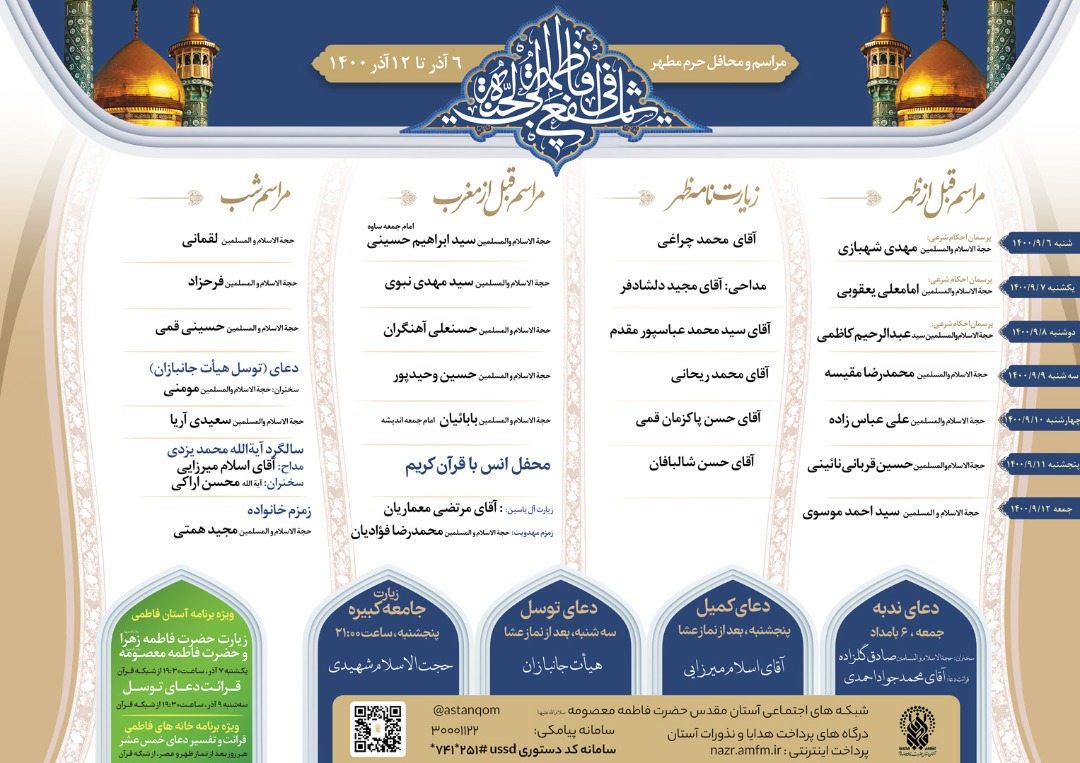 مراسم و محافل حرم مطهر
۶ آذر تا ۱۲ آذر ۱۴۰۰
یا فاطمة اشفعی لی فی الجنة
مراسم قبل از ظهر
زیارت‌نامه ظهر
مراسم قبل از مغرب
مراسم شب
شنبه ۱۴۰۰/۹/۶
پرسمان احکام شرعی:
حجة الاسلام والمسلمین مهدی شهبازی
آقای محمد چراغی
امام جمعه ساوه
حجة الاسلام والمسلمین سید ابراهیم حسینی
حجة الاسلام و المسلمین لقمانی
یکشنبه ۱۴۰۰/۹/۷
پرسمان احکام شرعی:
حجة الاسلام والمسلمین امامعلی یعقوبی
مداحی: آقای مجید دلشادفر
حجة الاسلام والمسلمین سید مهدی نبوی
حجة الاسلام و المسلمین فرحزاد
دوشنبه ۱۴۰۰/۹/۸
پرسمان احکام شرعی:
حجة الاسلام والمسلمین سید عبدالرحیم کاظمی
آقای سید محمد عباسپور مقدم
حجة الاسلام والمسلمین حسنعلی آهنگران
حجة الاسلام و المسلمین حسینی قمی
سه شنبه ۱۴۰۰/۹/۹
حجة الاسلام والمسلمین محمدرضا مقیسه
آقای محمد ریحانی
حجة الاسلام والمسلمین حسین وحیدپور
دعای (توسل هیأت جانبازان)
سخنران: حجة الاسلام والمسلمین مومنی
چهارشنبه ۱۴۰۰/۹/۱۰
حجة الاسلام والمسلمین علی عباس زاده
آقای حسن پاکزمان قمی
حجة الاسلام والمسلمین بابائیان امام جمعه اندیشه
حجة الاسلام والمسلمین سعیدی آریا
پنجشنبه ۱۴۰۰/۹/۱۱
حجة الاسلام والمسلمین حسین قربانی نائینی
آقای حسن شالبافان
محفل انس با قرآن کریم
سالگرد آیةالله محمد یزدی
مداح: آقای اسلام میرزایی
سخنران: آیة الله محسن اراکی
جمعه ۱۴۰۰/۹/۱۲
حجة الاسلام و المسلمین سید احمد موسوی
زیارت آل یاسین: : آقای مرتضی معماریان
زمزم مهدویت: حجة الاسلام و المسلمین محمدرضا فؤادیان
زمزم خانواده
حجة الاسلام و المسلمین مجید همتی
دعای ندبه
جمعه ، ۶ بامداد
سخنران: حجة الاسلام و المسلمین صادق گلزاده
قرائت دعا: آقای محمدجواد احمدی
دعای کمیل
پنجشنبه ، بعد از نماز عشا
آقای اسلام میرزایی
دعای توسل
سه شنبه ، بعد از نماز عشا
هیأت جانبازان
زیارت
جامعه کبیره
پنجشنبه ، ساعت ۲۱:۰۰
حجت الاسلام شهیدی
ویژه برنامه آستان فاطمی
زیارت حضرت فاطمه زهرا
و حضرت فاطمه معصومه
یکشنبه ۷ آذر ، ساعت ۱۹:۳۰ از شبکه قرآن
قرائت دعای توسل
سه‌شنبه ۹ آذر ، ساعت ۱۹:۳۰ از شبکه قرآن
ویژه برنامه خانه های فاطمی
قرائت و تفسیر دعای خمس عشر
هر روز بعد از نماز ظهر و عصر ، از شبکه قرآن
شبکه های اجتماعی آستان مقدس حضرت فاطمه معصومه سلام الله علیها
@astanqom
درگاه های پرداخت هدایا و نذورات آستان
سامانه پیامکی: ۳۰۰۰۱۱۲۲
پرداخت اینترنتی : nazr.amfm.ir
سامانه کد دستوری ussd #۲۵۱*۷۴۱*